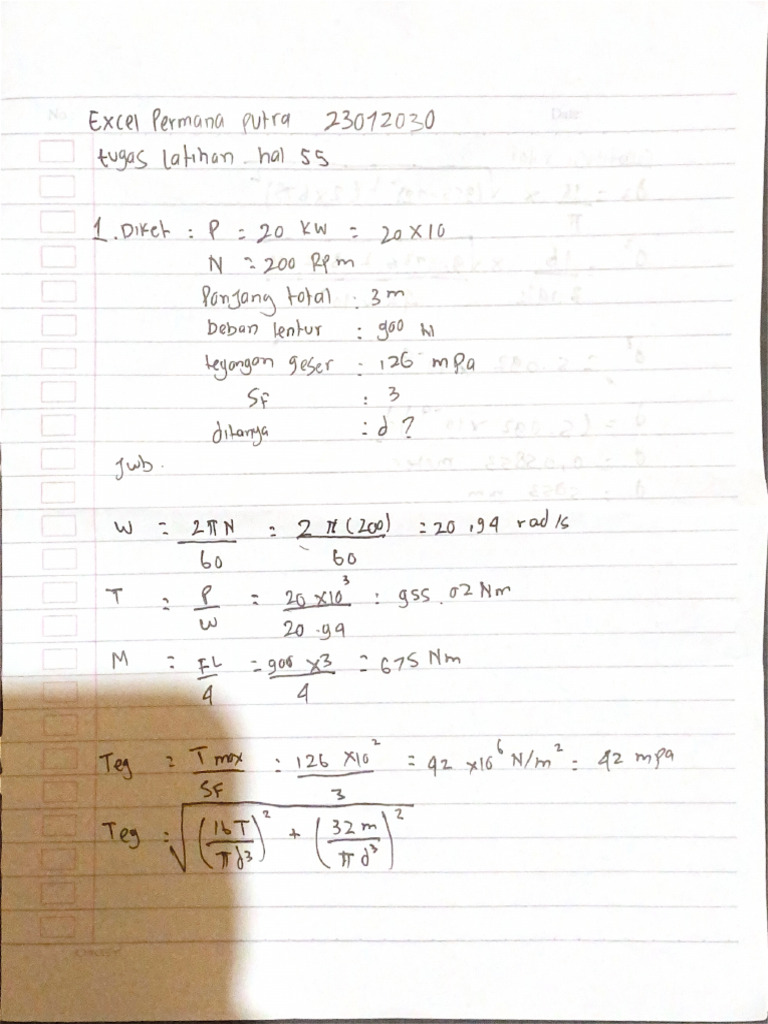 No.
Date
Excel Permana putra 23012030
tugas latihan hal 55
1. Diket : P = 20 KW = 20 x 10
N = 200 Rpm
Panjang total : 3 m
beban lentur : 900 N
tegangan geser : 126 mPa
SF : 3
ditanya : d ?
Jwb.
W = 2πN/60 = 2π(200)/60 = 20,94 rad/s
T = P/W = 20 x10³/20.94 : 955.02 Nm
M = FL/4 = 900 x3/4 = 675 Nm
Teg = T max/SF = 126 x10²/3 = 42 x10⁶ N/m² = 42 mpa
Teg = √((16T/πd³)² + (32m/πd³)²)